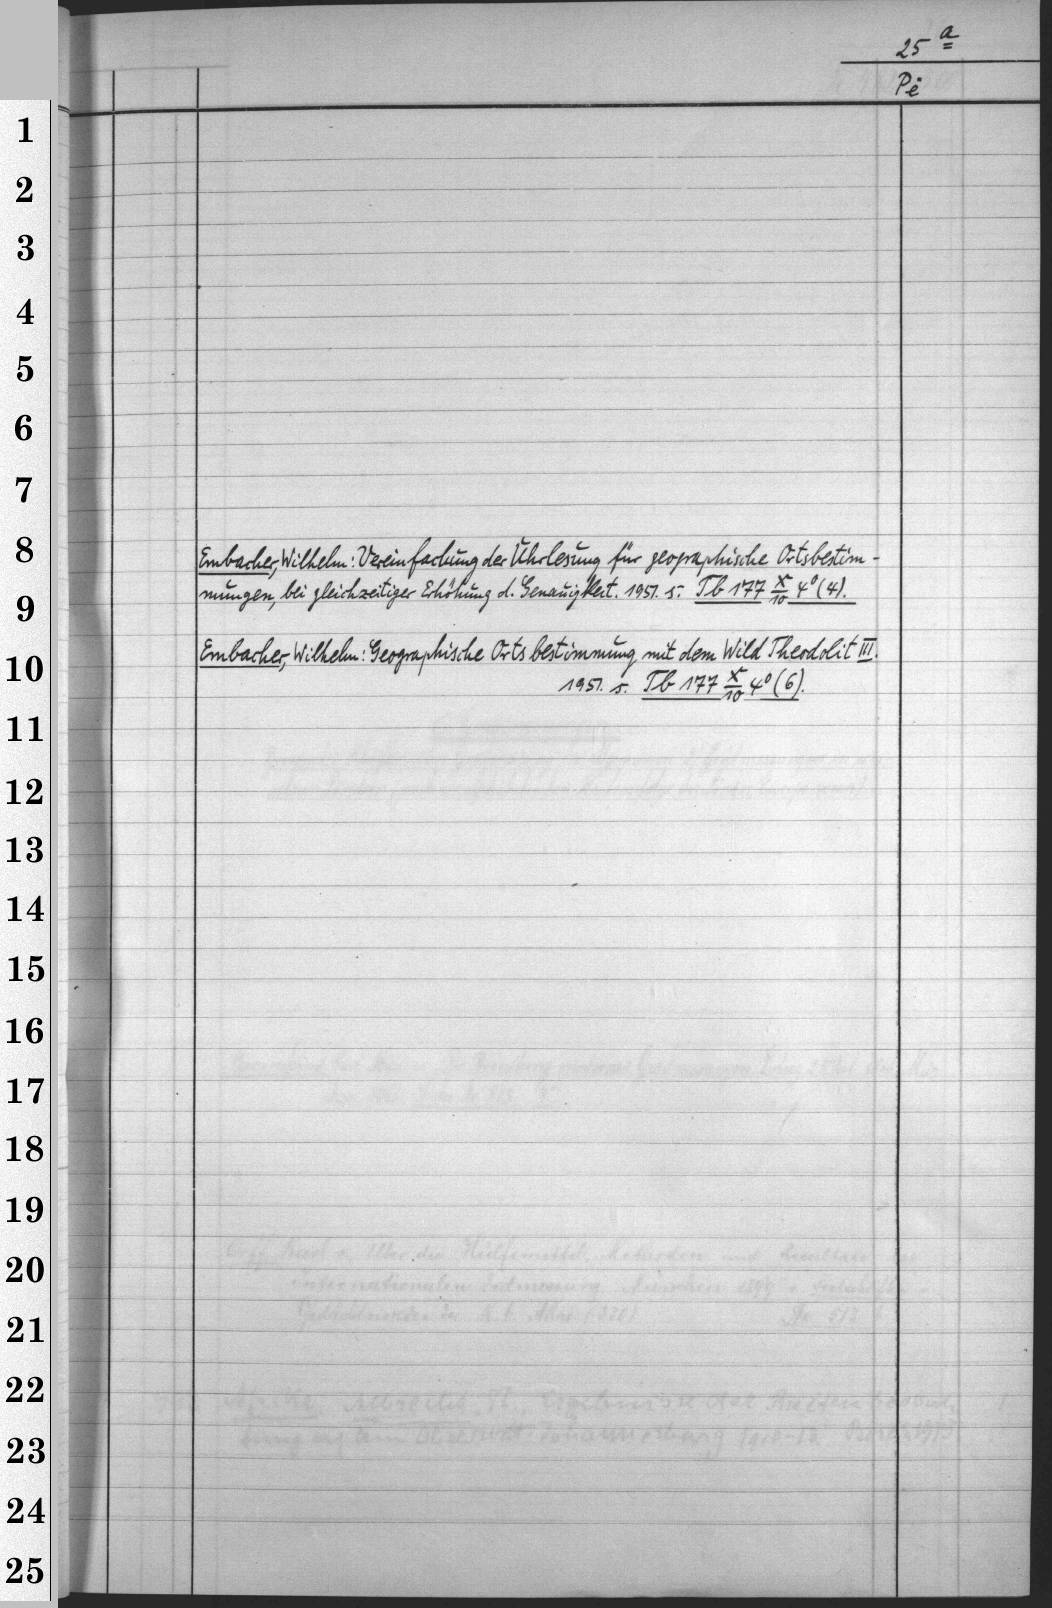 25 a
Pë
1
2
3
4
5
6
7
8
Embacher, Wilhelm: Vereinfachung der Uhrlesung für geographische Ortsbestim-
9
mungen, bei gleichzeitiger Erhöhung d. Genauigkeit. 1951. s. Tb 177 x/10 4° (4).
10
Embacher, Wilhelm: Geographische Ortsbestimmung mit dem Wild Theodolit III.
1951. s. Tb 177 x/10 4° (6).
11
12
13
14
15
16
17
18
19
20
21
22
23
24
25